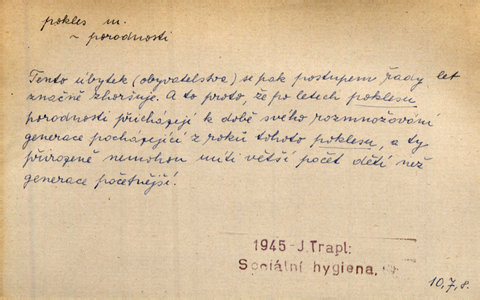 pokles m.
~ porodnosti
Tento úbytek (obyvatelstva) se pak postupem řady let
značně zhoršuje. A to proto, že po letech poklesu
porodnosti přicházejí k době svého rozmnožování
generace pocházející z roků tohoto poklesu, a ty
přirozeně nemohou míti větší počet dětí než
generace početnější.
1945 - J. Trapl:
Sociální hygiena.
10,7,8.